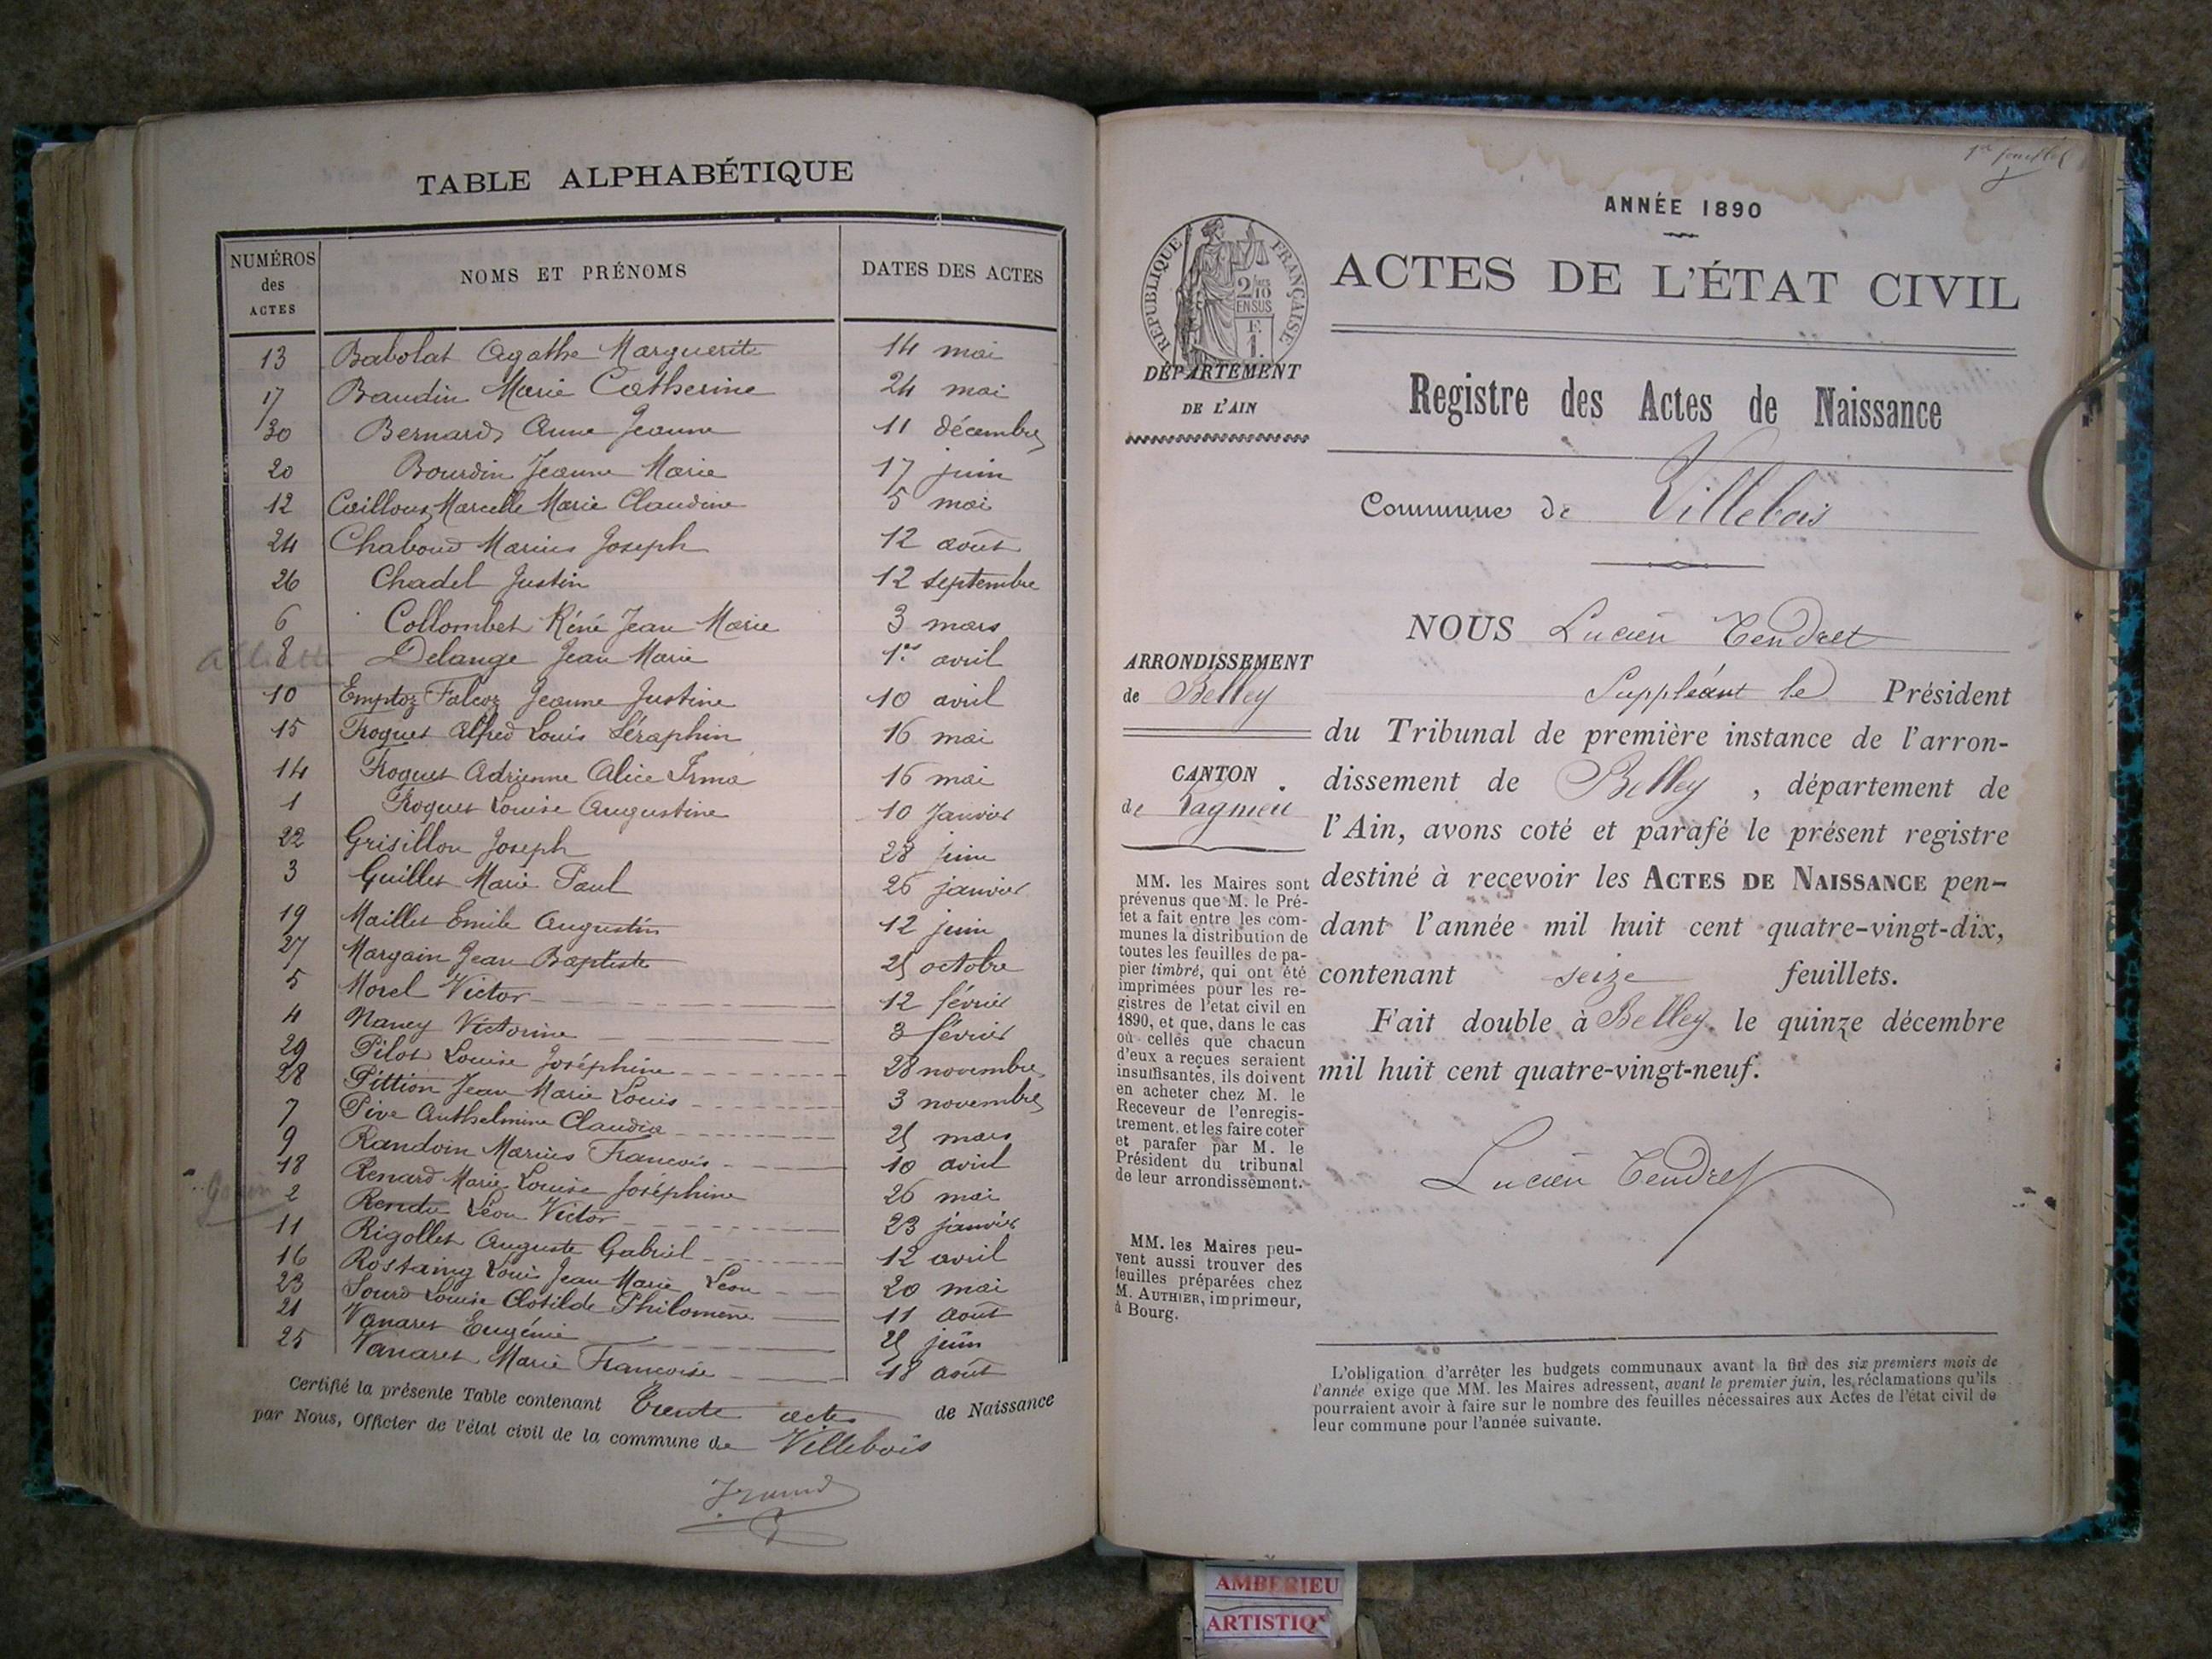 TABLE ALPHABÉTIQUE
NUMÉROS des ACTES
NOMS ET PRÉNOMS
DATES DES ACTES
13 Babolat Agathe Marguerite 14 mai
17 Baudin Marie Catherine 24 mai
30 Bernard Anne Jeanne 11 décembre
20 Bourdin Jeanne Marie 17 juin
12 Cailloux Marcelle Marie Claudine 5 mai
24 Chaboud Marius Joseph 12 août
26 Chadel Justin 12 septembre
6 Collombet Réné Jean Marie 3 mars
8 Delange Jean Marie 1er avril
10 Emptoz Falcoz Jeanne Justine 10 avril
15 Froquet Alfred Louis Séraphin 16 mai
14 Froquet Adrienne Alice Irma 16 mai
1 Froquet Louise Augustine 10 Janvier
22 Grisillon Joseph 28 juin
3 Guillet Marie Paul 26 janvier
19 Maillet Emile Augustin 12 juin
27 Margain Jean Baptiste 25 octobre
5 Morel Victor 12 février
4 Naney Victorine 3 février
29 Pilot Louise Joséphine 28 novembre
28 Pittion Jean Marie Louis 3 novembre
7 Pive Anthelmine Claudia 25 mars
9 Randoin Marius François 10 avril
18 Renard Marie Louise Joséphine 26 mai
2 Rendu Léon Victor 23 janvier
11 Rigollet Auguste Gabriel 12 avril
16 Rostaing Louis Jean Marie Léon 20 mai
23 Sourd Louise Clotilde Philomène 11 août
21 Vanaret Eugénie 25 juin
25 Vanaret Marie Françoise 18 août
Certifié la présente Table contenant Trente actes de Naissance
par Nous, Officier de l'état civil de la commune de Villebois
1er feuillet
ANNÉE 1890
RÉPUBLIQUE FRANÇAISE
2/10 EN SUS
F. 1.
ACTES DE L'ÉTAT CIVIL
DÉPARTEMENT
DE L'AIN
Registre des Actes de Naissance
Commune de Villebois
ARRONDISSEMENT
de Belley
CANTON
de Lagnieu
MM. les Maires sont
prévenus que M. le Pré-
fet a fait entre les com-
munes la distribution de
toutes les feuilles de pa-
pier timbré, qui ont été
imprimées pour les re-
gistres de l'état civil en
1890, et que, dans le cas
où celles que chacun
d'eux a reçues seraient
insuffisantes, ils doivent
en acheter chez M. le
Receveur de l'enregis-
trement, et les faire coter
et parafer par M. le
Président du tribunal
de leur arrondissement.
MM. les Maires peu-
vent aussi trouver des
feuilles préparées chez
M. AUTHIER, imprimeur,
à Bourg.
NOUS Lucien Tendret
Suppléant le Président
du Tribunal de première instance de l'arron-
dissement de Belley, département de
l'Ain, avons coté et parafé le présent registre
destiné à recevoir les ACTES DE NAISSANCE pen-
dant l'année mil huit cent quatre-vingt-dix,
contenant seize feuillets.
Fait double à Belley, le quinze décembre
mil huit cent quatre-vingt-neuf.
Lucien Tendret
L'obligation d'arrêter les budgets communaux avant la fin des six premiers mois de
l'année exige que MM. les Maires adressent, avant le premier juin, les réclamations qu'ils
pourraient avoir à faire sur le nombre des feuilles nécessaires aux Actes de l'état civil de
leur commune pour l'année suivante.
AMBERIEU
ARTISTIQ